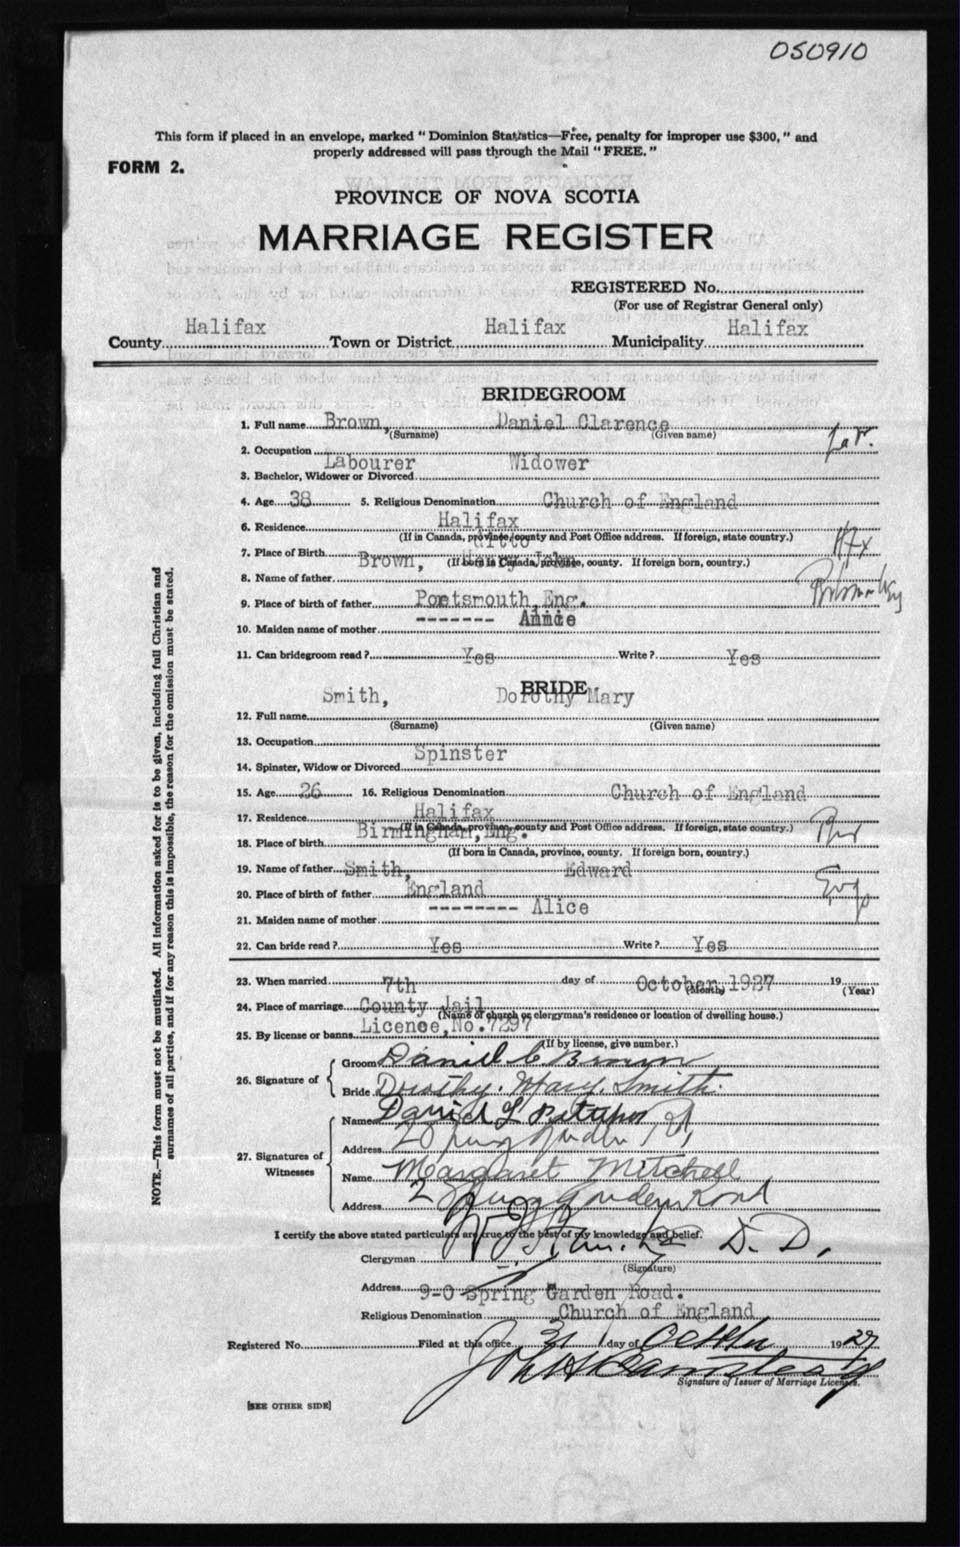 050910
This form if placed in an envelope, marked "Dominion Statistics—Free, penalty for improper use $300," and
properly addressed will pass through the Mail "FREE."
FORM 2.
PROVINCE OF NOVA SCOTIA
MARRIAGE REGISTER
REGISTERED No.
(For use of Registrar General only)
County Halifax Town or District Halifax Municipality Halifax
BRIDEGROOM
1. Full name Brown, Daniel Clarence
(Surname) (Given name)
2. Occupation Labourer
3. Bachelor, Widower or Divorced Widower
4. Age 38 5. Religious Denomination Church of England
6. Residence Halifax
(If in Canada, province, county and Post Office address. If foreign, state country.)
7. Place of Birth ditto
(If born in Canada, province, county. If foreign born, country.)
8. Name of father Brown, Henry John
9. Place of birth of father Portsmouth, Eng.
10. Maiden name of mother ------- Annie
11. Can bridegroom read? Yes Write? Yes
BRIDE
12. Full name Smith, Dorothy Mary
(Surname) (Given name)
13. Occupation
14. Spinster, Widow or Divorced Spinster
15. Age 26 16. Religious Denomination Church of England
17. Residence Halifax
(If in Canada, province, county and Post Office address. If foreign, state country.)
18. Place of birth Birmingham, Eng.
(If born in Canada, province, county. If foreign born, country.)
19. Name of father Smith, Edward
20. Place of birth of father England
21. Maiden name of mother -------- Alice
22. Can bride read? Yes Write? Yes
23. When married 7th day of October, 1927 19
(Month) (Year)
24. Place of marriage County Jail
(Name of church or clergyman's residence or location of dwelling house.)
25. By license or banns Licence, No. 7297
(If by license, give number.)
26. Signature of
Groom Daniel C Brown
Bride Dorothy. Mary. Smith.
27. Signatures of Witnesses
Name Daniel L
Address Rd,
Name Margaret Mitchell
Address Spring Garden Road
I certify the above stated particulars are true to the best of my knowledge and belief.
Clergyman D. D.
(Signature)
Address 9-0 Spring Garden Road.
Religious Denomination Church of England
Registered No. Filed at this office 31 day of 1927
Signature of Issuer of Marriage Licenses.
[SEE OTHER SIDE]
NOTE.—This form must not be mutilated. All information asked for is to be given, including full Christian and
surnames of all parties, and if for any reason this is impossible, the reason for the omission must be stated.